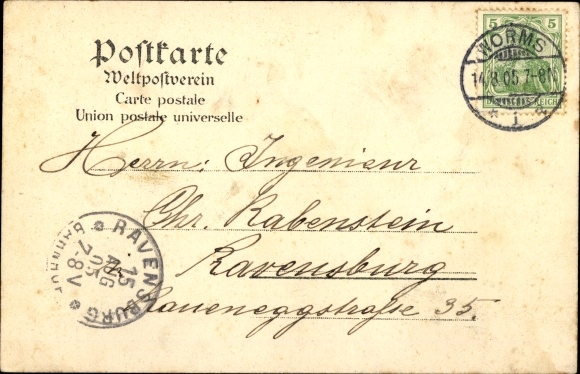 Postkarte
Weltpostverein
Carte postale
Union postale universelle
5 5
WORMS
14.8.05.7-8N.
* 1
DEUTSCHES REICH
Herrn: Ingenieur
Chr. Rabenstein
Ravensburg
Raueneggstraße 35.
RAVENSBURG
15
AUG
05
7-8V
BAHNHOF